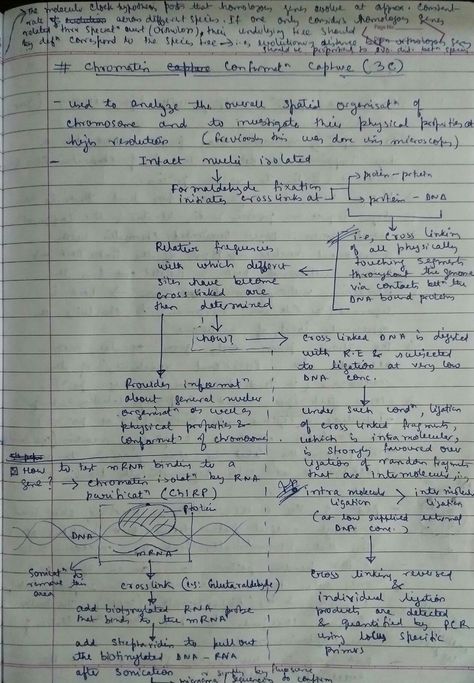 The molecular clock hypothesis posits that homologous genes evolve at approx. constant
rate of evolution across different species. If one only considers homologous genes
related thro' speciatn event (orthologs), their underlying tree should
by defn correspond to the species tree → i.e, evolutionary distance betn orthologous genes
should be proportional to betn species
# Chromatin capture Conformatn Capture (3C)
- used to analyze the overall spatial organisatn of
chromosome and to investigate their physical properties at
high resolution. (Previously this was done via microscopy)
- Intact nuclei isolated
Formaldehyde fixation
initiates crosslinks at
protein-protein
protein - DNA
i.e, cross linking
of all physically
touching segments
throughout the genome
via contacts betn the
DNA bound proteins
Relative frequencies
with which different
sites have become
cross linked are
then determined
how?
cross linked DNA is digested
with R.E & subjected
to ligation at very low
DNA conc.
Provides informatn
about general nuclear
organisatn as well as
physical properties &
conformatn of chromosome
under such condn, ligation
of cross linked fragments,
which is intramolecular,
is strongly favoured over
ligation of random fragments
that are intermolecular, i.e,
intra molecular > inter molecular
ligation ligation
(at low supplied external
DNA conc.)
Cross linking reversed
&
individual ligation
products are detected
& quantified by PCR
using locus specific
primers
How to test mRNA binding to a
gene? → chromatin isolatn by RNA
purificatn (ChIRP)
Protein
DNA
mRNA
Sonicatn to
remove this
area
crosslink (eg: Glutaraldehyde)
add biotinylated RNA probe
that binds to the mRNA
add streptavidin to pull out
the biotinylated DNA - RNA
after sonication
microarray / sequencing to confirm